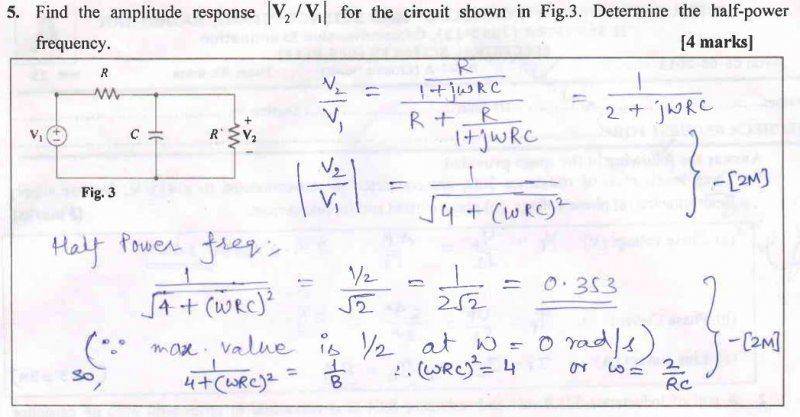 5. Find the amplitude response |V₂ / V₁| for the circuit shown in Fig.3. Determine the half-power
frequency. [4 marks]
R
V₁ + − C R V₂ + −
Fig. 3
V₂/V₁ = (R/(1+jωRC)) / (R + R/(1+jωRC)) = 1/(2 + jωRC)
|V₂/V₁| = 1/√(4 + (ωRC)²) } - [2M]
Half Power freq:
1/√(4 + (ωRC)²) = (1/2)/√2 = 1/(2√2) = 0.353
(∵ max. value is 1/2 at ω = 0 rad/s) } - [2M]
so, 1/(4+(ωRC)²) = 1/8 ∴ (ωRC)² = 4 or ω = 2/RC